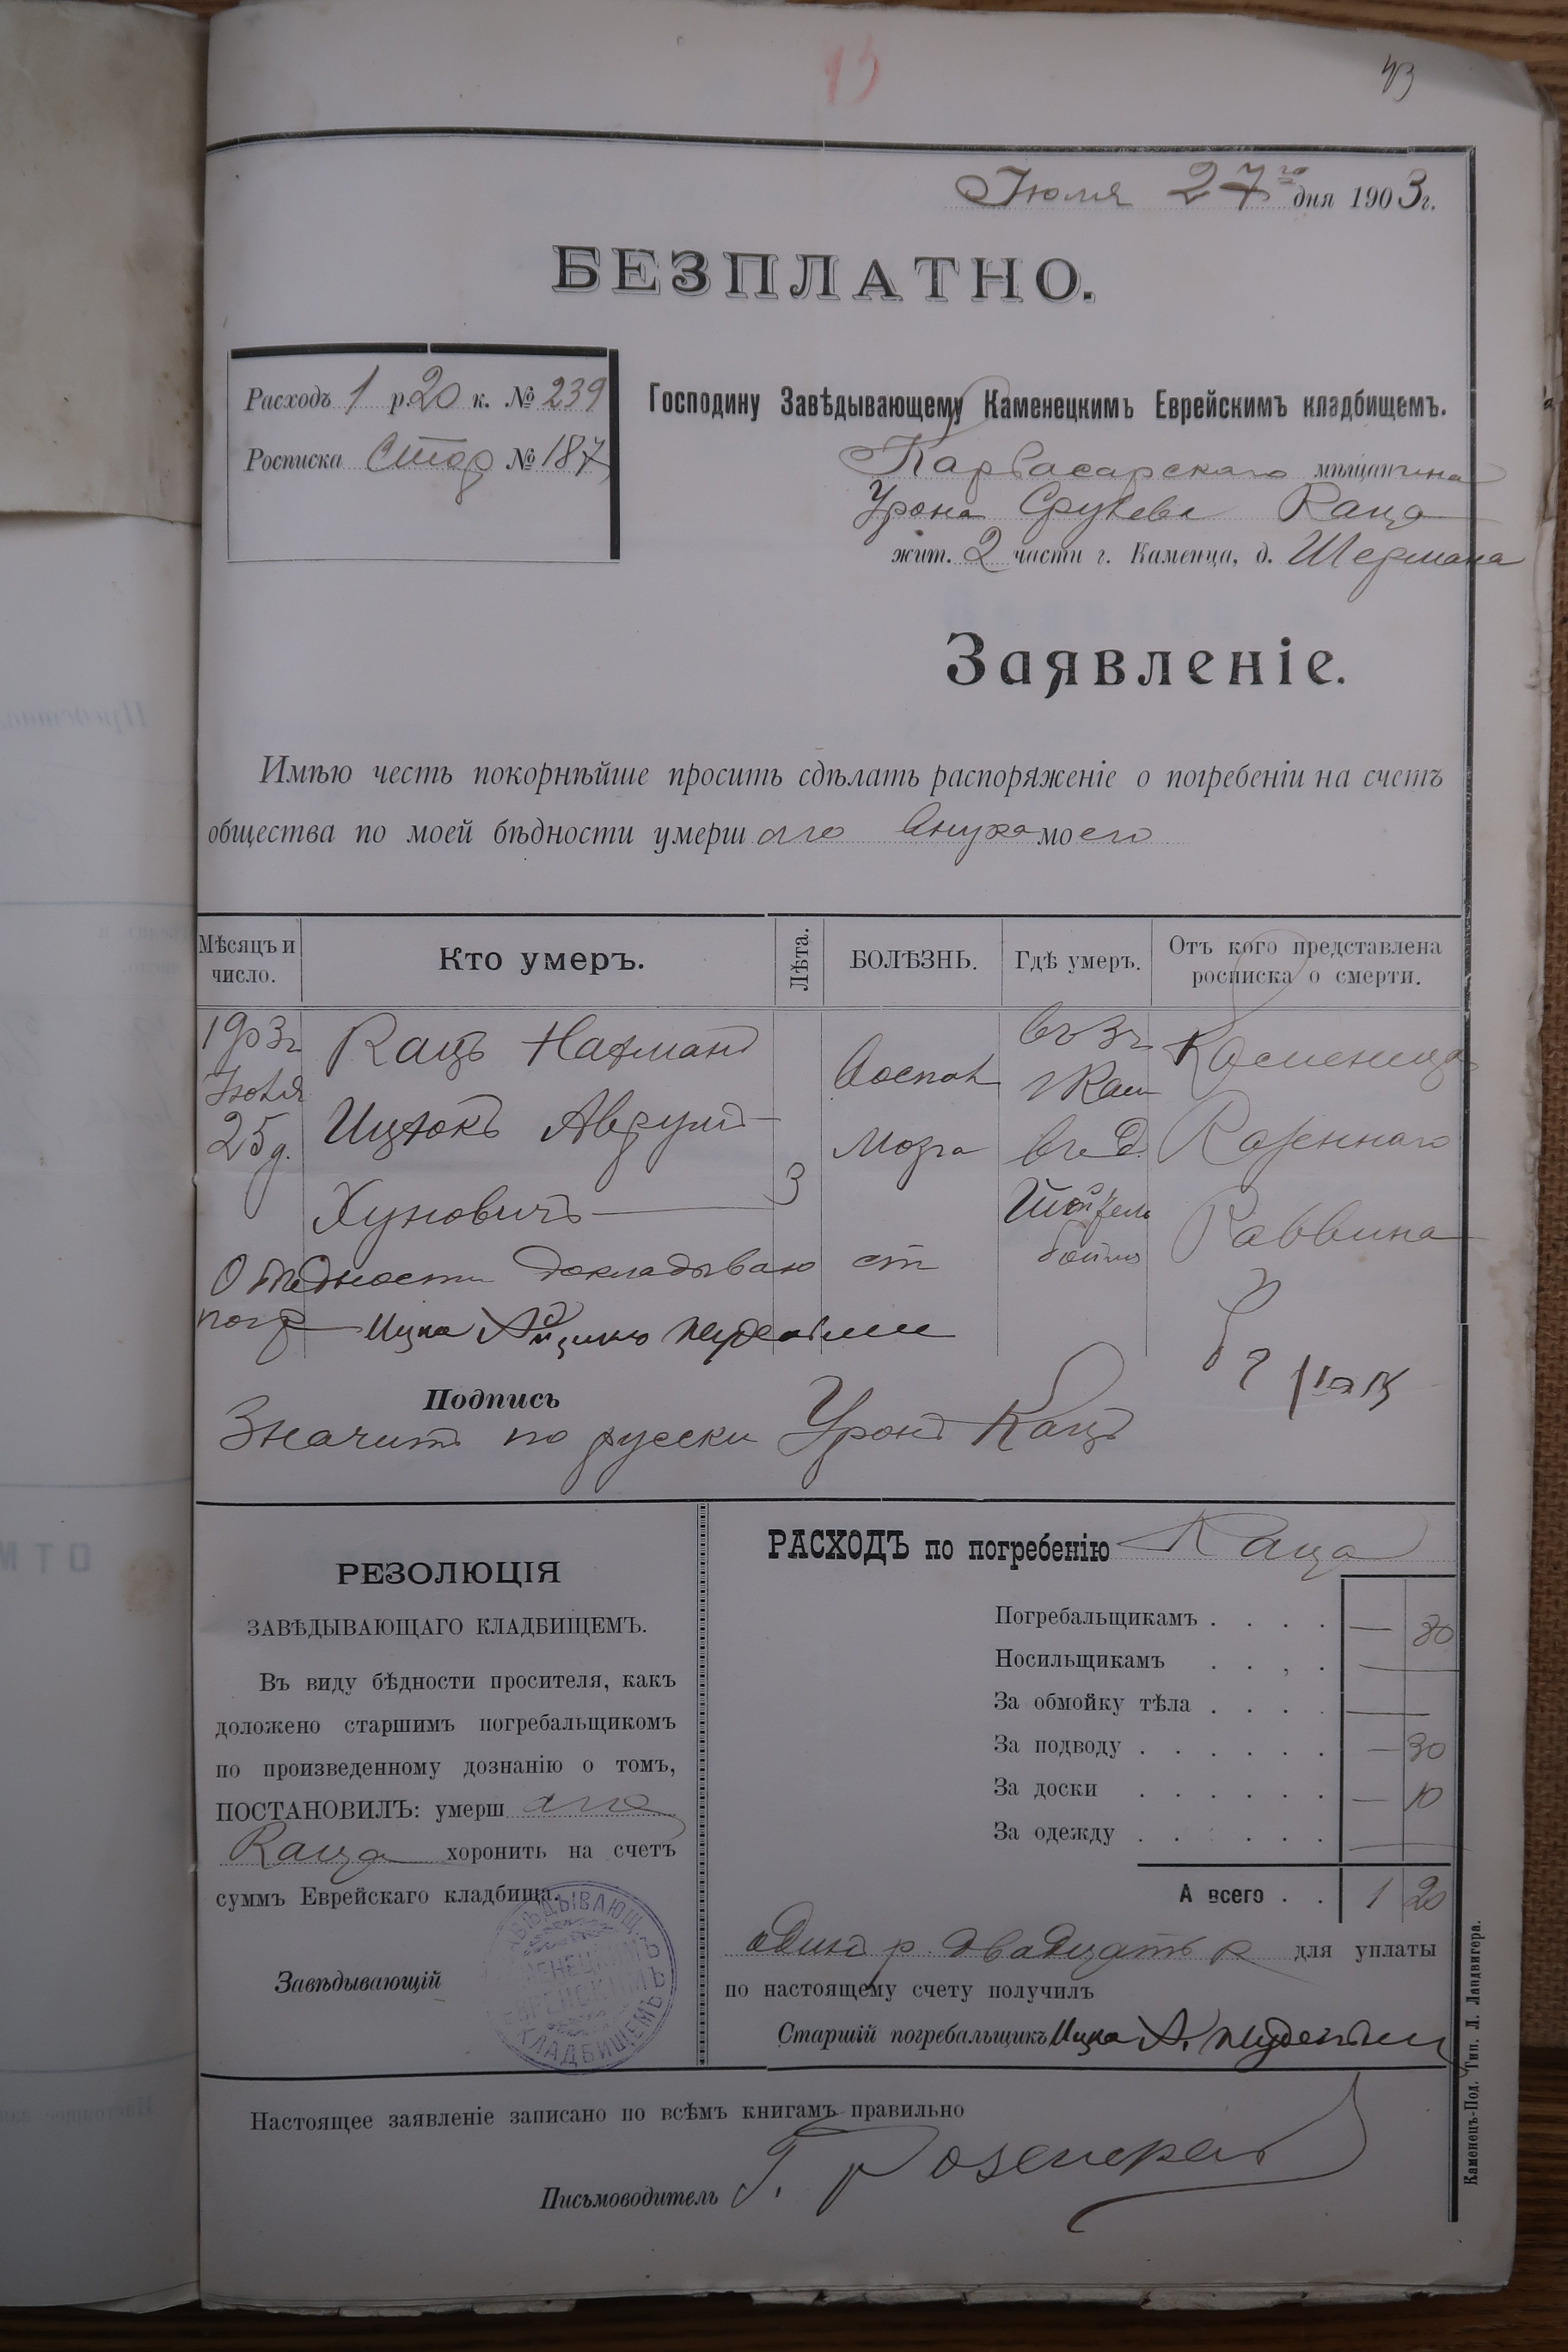 43
Іюля 27го дня 1903 г.
БЕЗПЛАТНО.
Расходъ 1 р. 20 к. № 239
Росписка № 187
Господину Завѣдывающему Каменецкимъ Еврейскимъ кладбищемъ.
Карвасарскаго мѣщанина
Урона Срулева Каца
жит. 2 части г. Каменца, д. Шермана
Заявленіе.
Имѣю честь покорнѣйше просить сдѣлать распоряженіе о погребеніи на счетъ
общества по моей бѣдности умершаго внука моего
Мѣсяцъ и число. Кто умеръ. Лѣта. БОЛѢЗНЬ. Гдѣ умеръ. Отъ кого представлена росписка о смерти.
1903г Кацъ Нахманъ Каменец
Іюля Воспал г Кам
25 д. Ицхокъ Аврумъ мозга въ д. Казеннаго
3
Хуновичъ Раввина
О бѣдности докладываю ст
погр Ицка
Подпись
Значитъ по русски Уронъ Кацъ
РЕЗОЛЮЦІЯ
ЗАВѢДЫВАЮЩАГО КЛАДБИЩЕМЪ.
Въ виду бѣдности просителя, какъ
доложено старшимъ погребальщикомъ
по произведенному дознанію о томъ,
ПОСТАНОВИЛЪ: умершаго
Каца хоронить на счетъ
суммъ Еврейскаго кладбища.
Завѣдывающій
ЗАВѢДЫВАЮЩ. КАМЕНЕЦКИМЪ ЕВРЕЙСКИМЪ КЛАДБИЩЕМЪ
РАСХОДЪ по погребенію Каца
Погребальщикамъ . . . . — 80
Носильщикамъ . . , . —
За обмойку тѣла . . . . —
За подводу . . . . . . — 30
За доски . . . . . . — 10
За одежду . . . . . . —
А всего . . 1 20
одинъ р. двадцать к для уплаты
по настоящему счету получилъ
Старшій погребальщикъ Ицка А.
Настоящее заявленіе записано по всѣмъ книгамъ правильно
Письмоводитель
Каменецъ-Под. Тип. Л. Ландвигера.